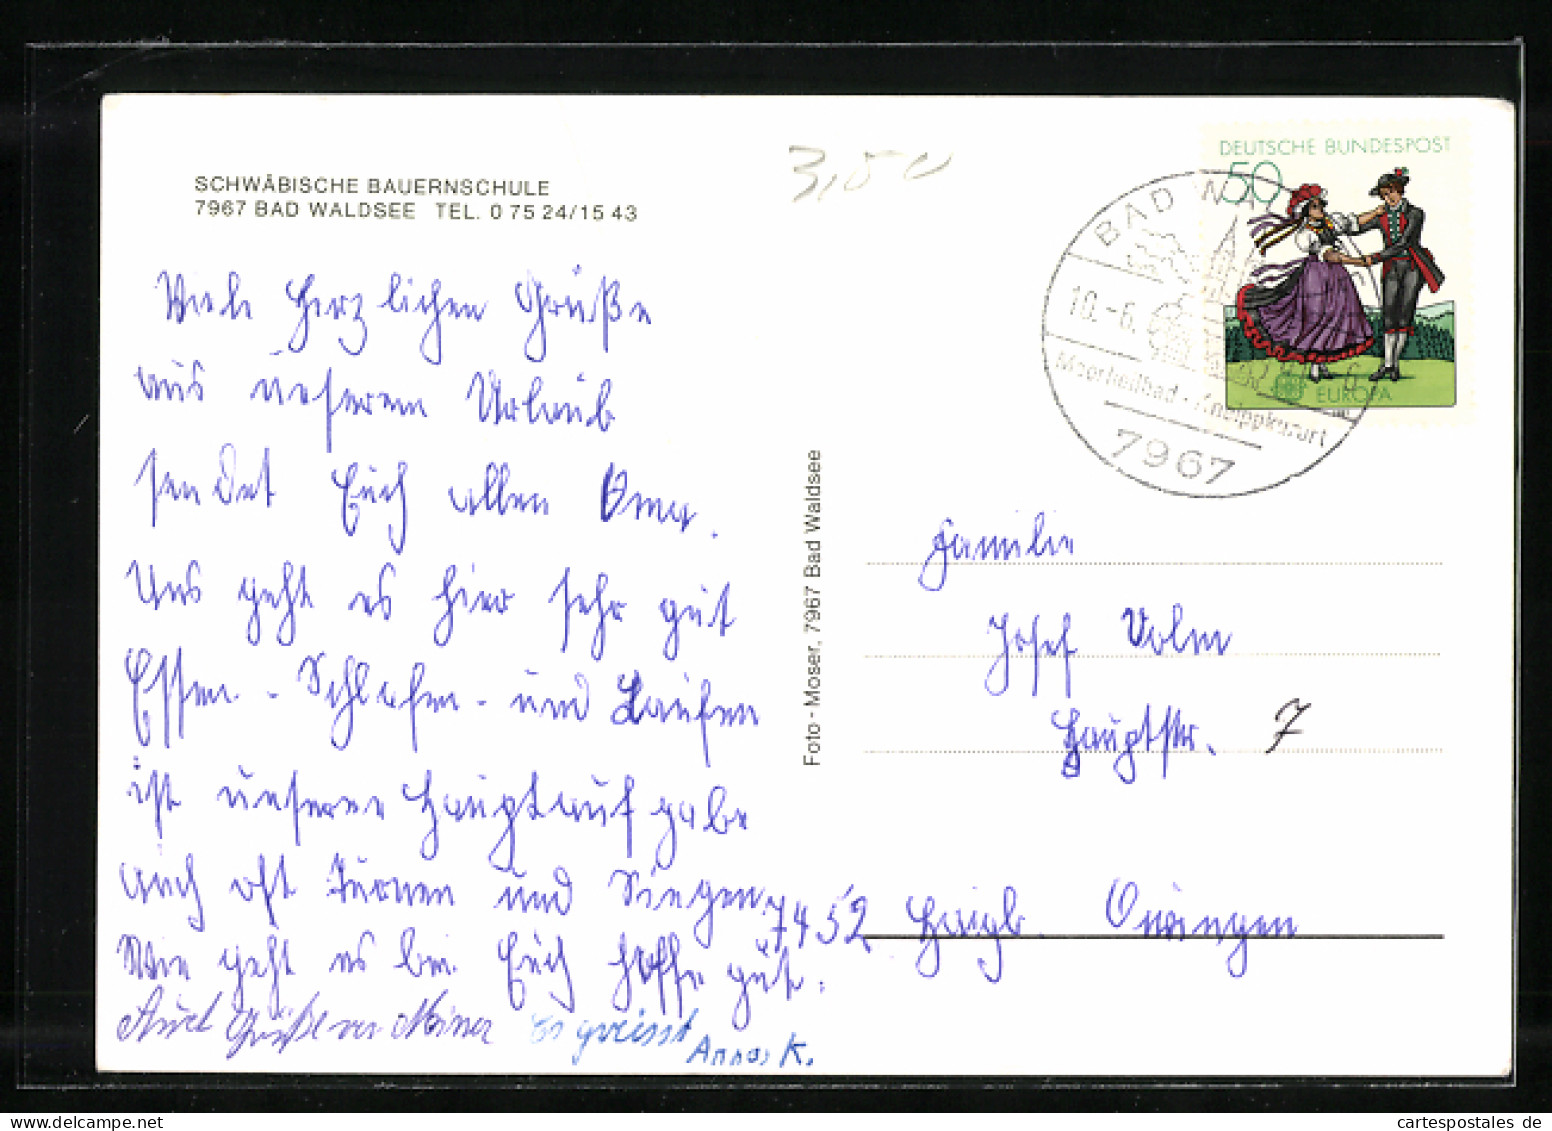 SCHWÄBISCHE BAUERNSCHULE
7967 BAD WALDSEE TEL. 0 75 24/15 43
3,50
DEUTSCHE BUNDESPOST
50
EUROPA
BAD WAL
10.-6.
Moorheilbad - Kneippkurort
7967
Viele Herzlichen Grüße
aus unserem Urlaub
sendet Euch allen Oma.
Uns geht es hier sehr gut
Essen - Schlafen - und Laufen
ist unsere Hauptaufgabe
auch oft Turnen und Singen
Wie geht es bei Euch hoffe gut.
Auch Grüße von
Es grüsst
Anna K.
Foto - Moser, 7967 Bad Waldsee
Familie
Josef Volm
Hauptstr. 7
7452 Haigl. Owingen
cartespostales de